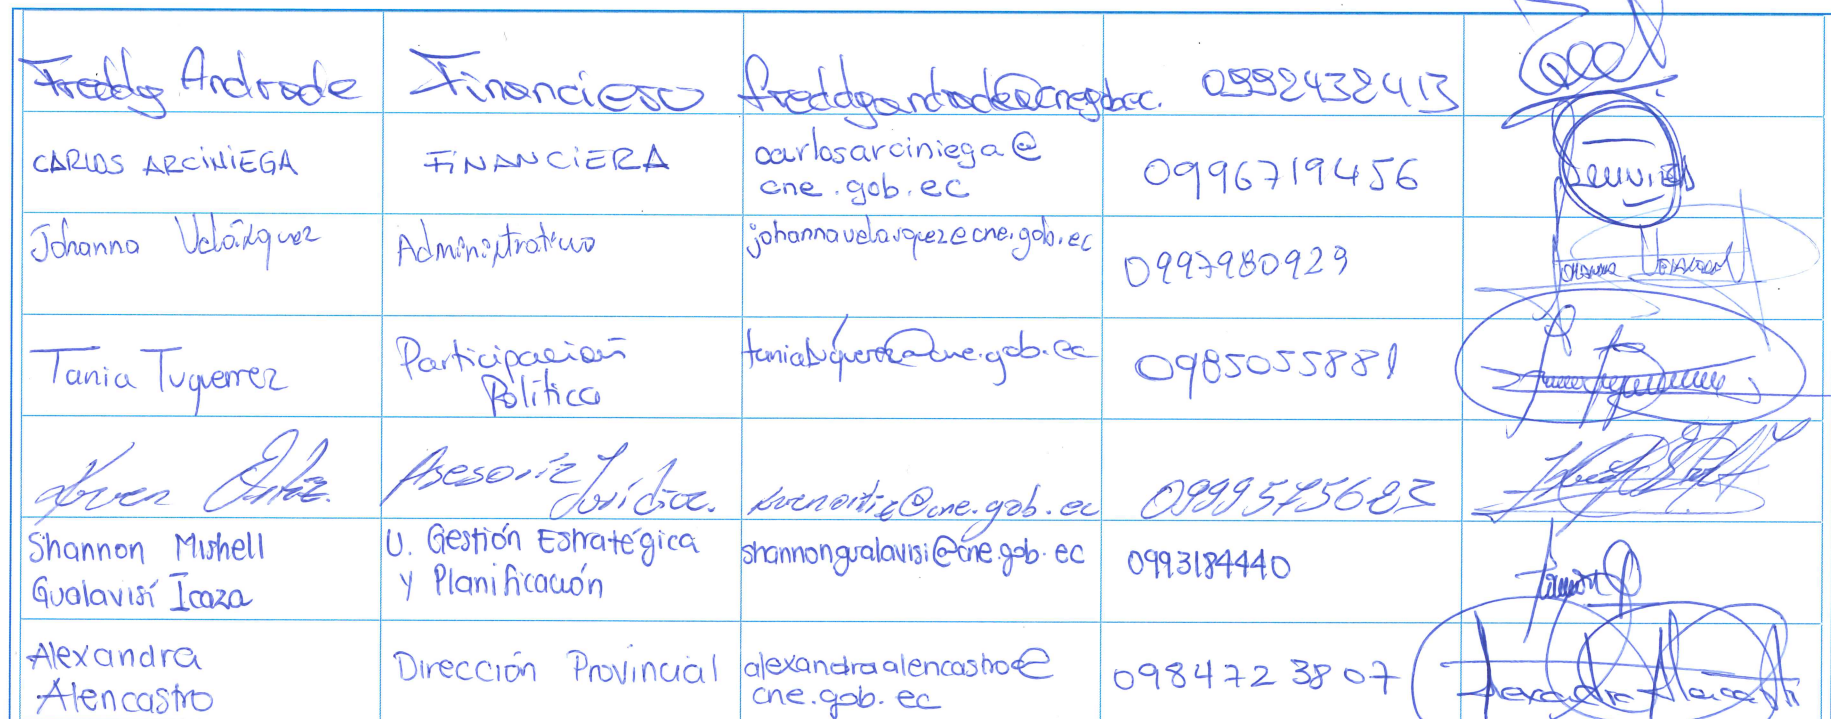 Freddy Andrade Financiero freddyandrade@cne.gob.ec. 0992432413
CARLOS ARCINIEGA FINANCIERA carlosarciniega@
cne.gob.ec 0996719456
Johanna Velázquez Administrativo johannavelasquez@cne.gob.ec 0997980929
Tania Tuquerrez Participación
Política 0985055881
Ortiz. Asesoría
Jurídica. @cne.gob.ec 0999575683
Shannon Mishell
Gualavisí Icaza U. Gestión Estratégica
y Planificación shannongualavisi@cne.gob.ec 0993184440
Alexandra
Alencastro Dirección Provincial alexandraalencastro@
cne.gob.ec 0984723807